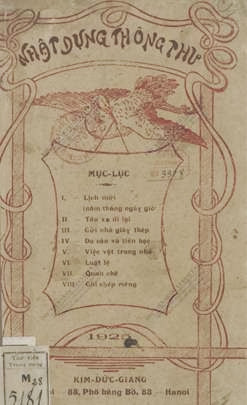 NHẬT DỤNG THÔNG THƯ
MỤC-LỤC
I. - Lịch mới
(năm tháng ngày giờ)
II. - Tàu xe đi lại
III. - Gửi nhà giây thép
IV. - Đo cân và tiền bạc
V. - Việc vặt trong nhà
VI. - Luật lệ
VII. - Quan chế
VIII. - Ghi chép riêng
1925
KIM-ĐỨC-GIANG
88, Phố hàng Bồ, 88 — Hanoi
M 28
5181